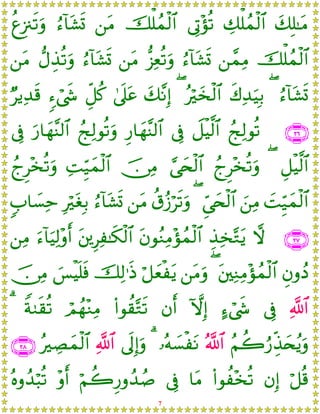 مَٰلِكَ ٱلْمُلْكِ تُؤْتِى ٱلْمُلْكَ مَن تَشَآءُ وَتَنزِعُ
ٱلْمُلْكَ مِمَّن تَشَآءُ وَتُعِزُّ مَن تَشَآءُ وَتُذِلُّ مَن
تَشَآءُ ۖ بِيَدِكَ ٱلْخَيْرُ ۖ إِنَّكَ عَلَىٰ كُلِّ شَىْءٍ قَدِيرٌ
﴿٢٦﴾ تُولِجُ ٱلَّيْلَ فِى ٱلنَّهَارِ وَتُولِجُ ٱلنَّهَارَ فِى
ٱلَّيْلِ ۖ وَتُخْرِجُ ٱلْحَىَّ مِنَ ٱلْمَيِّتِ وَتُخْرِجُ
ٱلْمَيِّتَ مِنَ ٱلْحَىِّ ۖ وَتَرْزُقُ مَن تَشَآءُ بِغَيْرِ حِسَابٍ
﴿٢٧﴾ لَّا يَتَّخِذِ ٱلْمُؤْمِنُونَ ٱلْكَٰفِرِينَ أَوْلِيَآءَ مِن
دُونِ ٱلْمُؤْمِنِينَ ۖ وَمَن يَفْعَلْ ذَٰلِكَ فَلَيْسَ مِنَ
ٱللَّهِ فِى شَىْءٍ إِلَّآ أَن تَتَّقُوا۟ مِنْهُمْ تُقَىٰةً ۗ
وَيُحَذِّرُكُمُ ٱللَّهُ نَفْسَهُۥ ۗ وَإِلَى ٱللَّهِ ٱلْمَصِيرُ ﴿٢٨﴾
قُلْ إِن تُخْفُوا۟ مَا فِى صُدُورِكُمْ أَوْ تُبْدُوهُ
٧